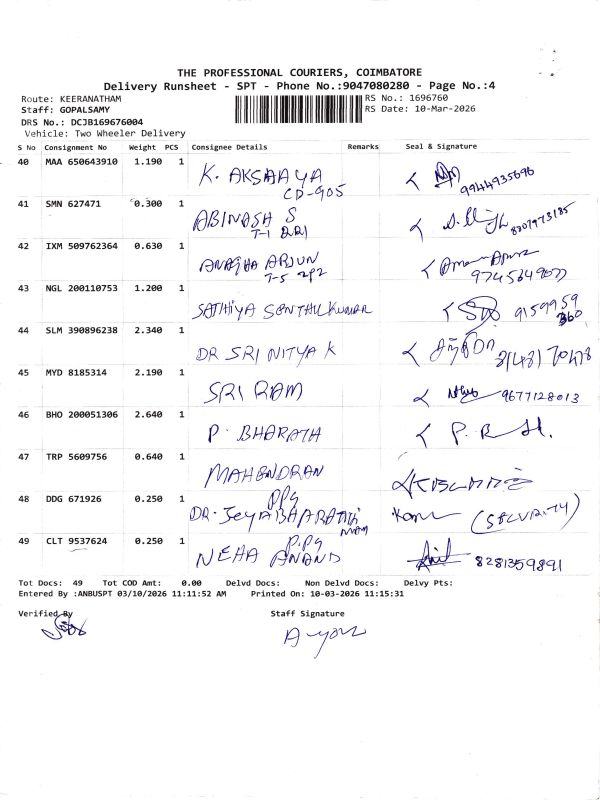 THE PROFESSIONAL COURIERS, COIMBATORE
Delivery Runsheet - SPT - Phone No.:9047080280 - Page No.:4
Route: KEERANATHAM RS No.: 1696760
Staff: GOPALSAMY RS Date: 10-Mar-2026
DRS No.: DCJB169676004
Vehicle: Two Wheeler Delivery
S No Consignment No Weight PCS Consignee Details Remarks Seal & Signature
40 MAA 650643910 1.190 1 K. AKSHAYA
CD-905 9944935696
41 SMN 627471 0.300 1 ABINASH S
T-1
42 IXM 509762364 0.630 1 ANAGHA ARJUN
T-5 292
43 NGL 200110753 1.200 1 SATHIYA SENTHIL KUMAR 9159959
360
44 SLM 390896238 2.340 1 DR SRI NITYA K
45 MYD 8185314 2.190 1 SRI RAM 9677128013
46 BHO 200051306 2.640 1 P. BHARATH
47 TRP 5609756 0.640 1 MAHENDRAN
48 DDG 671926 0.250 1 PPG
DR. JEYABHARATHI MAM (SECURITY)
49 CLT 9537624 0.250 1 P.PG
NEHA ANAND 8281359891
Tot Docs: 49 Tot COD Amt: 0.00 Delvd Docs: Non Delvd Docs: Delvy Pts:
Entered By :ANBUSPT 03/10/2026 11:11:52 AM Printed On: 10-03-2026 11:15:31
Verified By Staff Signature